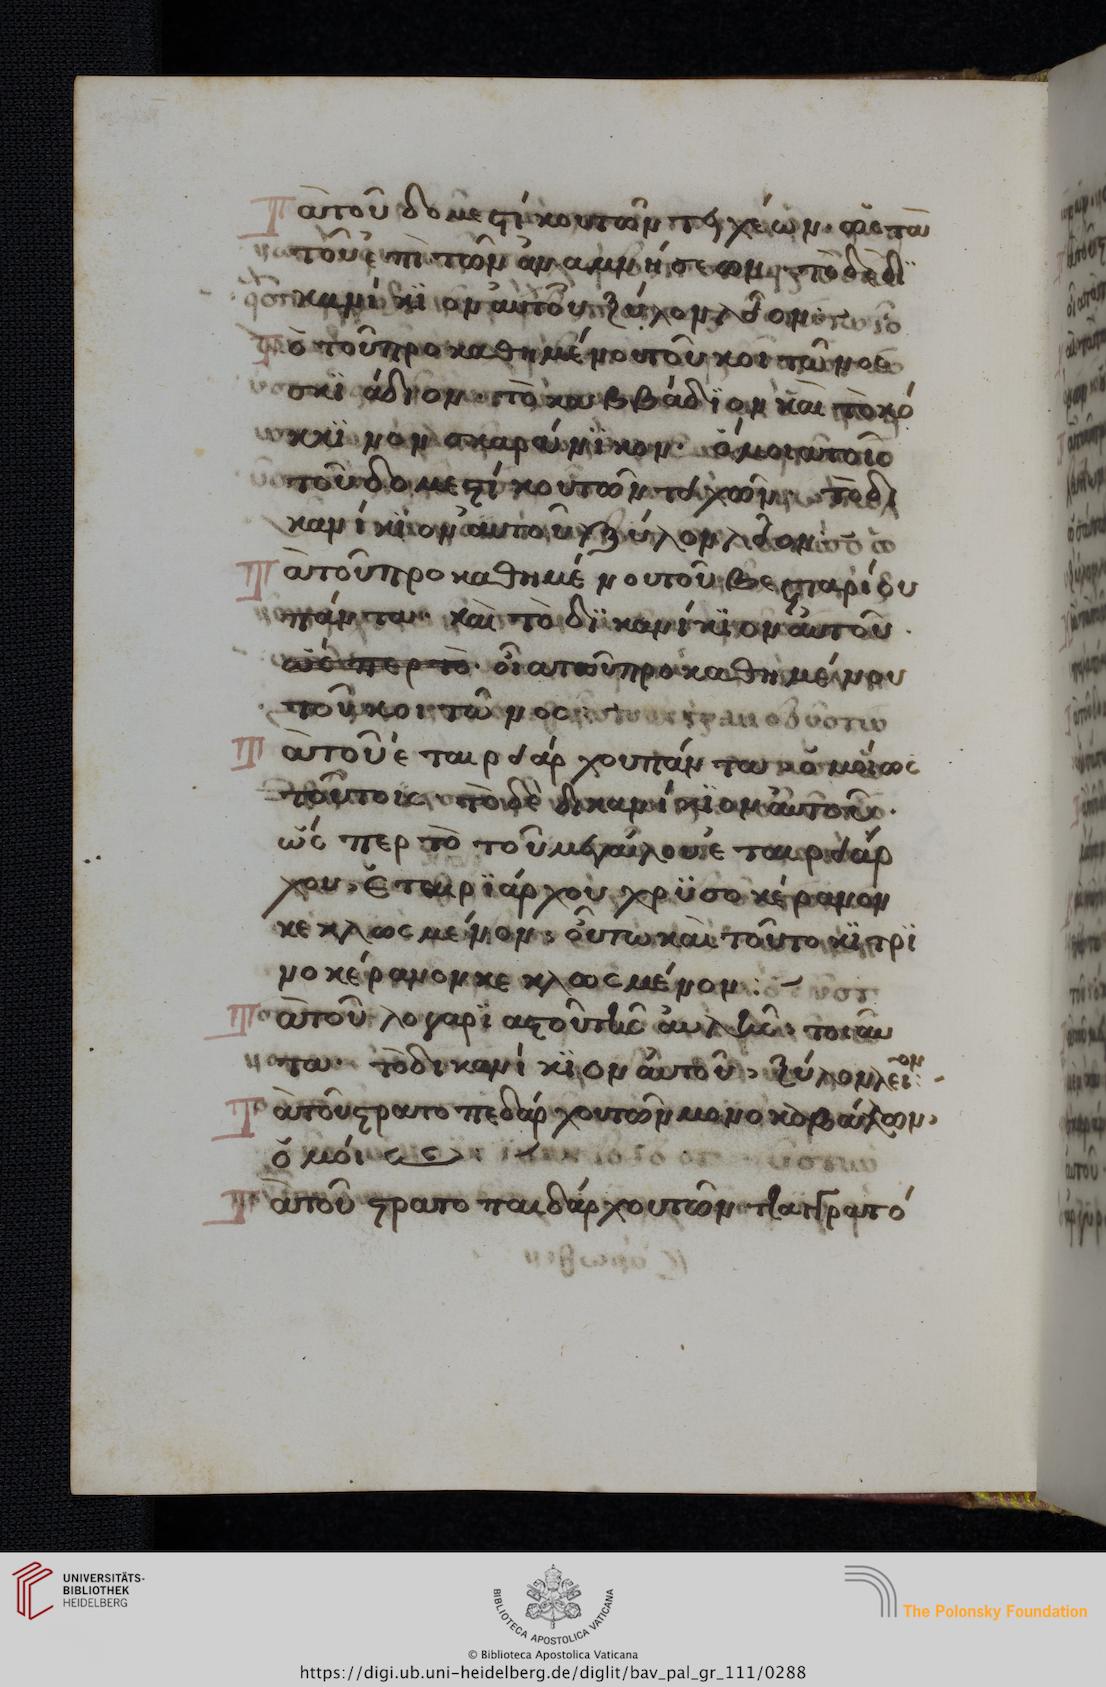 Τὰ τοῦ δομεστίκου τῶν τειχέων. ὡς τὰ
τοῦ ἐπὶ τῶν ἀναμνήσεων, τὸ δὲ δϊ
κανίκϊον αὐτοῦ ξύλον λεῖον
τὰ τοῦ προκαθημένου τοῦ κοιτῶνος
σκϊάδιον. τὸ καββάδϊον καὶ τὸ κό
κκϊνον σκαράνϊκον. ὅμοια τοῖς
τοῦ δομεστίκου τῶν τειχῶν. τὸ δι
κανίκϊον αὐτοῦ ξύλον λεῖον
Τὰ τοῦ προκαθημένου τοῦ βεσταρίου
πάντα. καὶ τὸ δϊκανίκϊον αὐτοῦ.
οἷα τοῦ προκαθημένου
τοῦ κοιτῶνος
Τὰ τοῦ ἑταιρειάρχου πάντα ὁμοίως
τούτοις. τὸ δὲ δικανίκϊον αὐτοῦ.
ὥσπερ τὸ τοῦ μεγάλου ἑταιρειάρ
χου. ἑταιρϊάρχου χρϋσοκέρανον
κεκλωσμένον. οὕτω καὶ τοῦτο κϊτρϊ
νοκέρανον κεκλωσμένον :
Τὰ τοῦ λογαρϊαστοῦ τῆς αὐλῆς. τοιαῦ
τα. τὸ δικανίκϊον αὐτοῦ, ξύλον λεῖον
Τὰ τοῦ στρατοπεδάρχου τῶν μονοκαβάλων.
ὅμοια
Τὰ τοῦ στρατοπαιδάρχου τῶν τζαγγρατό
UNIVERSITÄTS-
BIBLIOTHEK
HEIDELBERG
BIBLIOTECA APOSTOLICA VATICANA
The Polonsky Foundation
© Biblioteca Apostolica Vaticana
https://digi.ub.uni-heidelberg.de/diglit/bav_pal_gr_111/0288